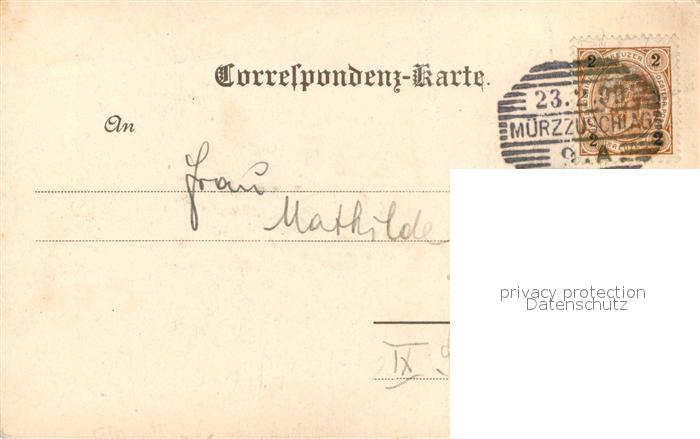 Correspondenz-Karte.
An
Frau
Mathilde
IX
2 2
23.
MÜRZZUSCHLAG
2 2
9.A
privacy protection
Datenschutz